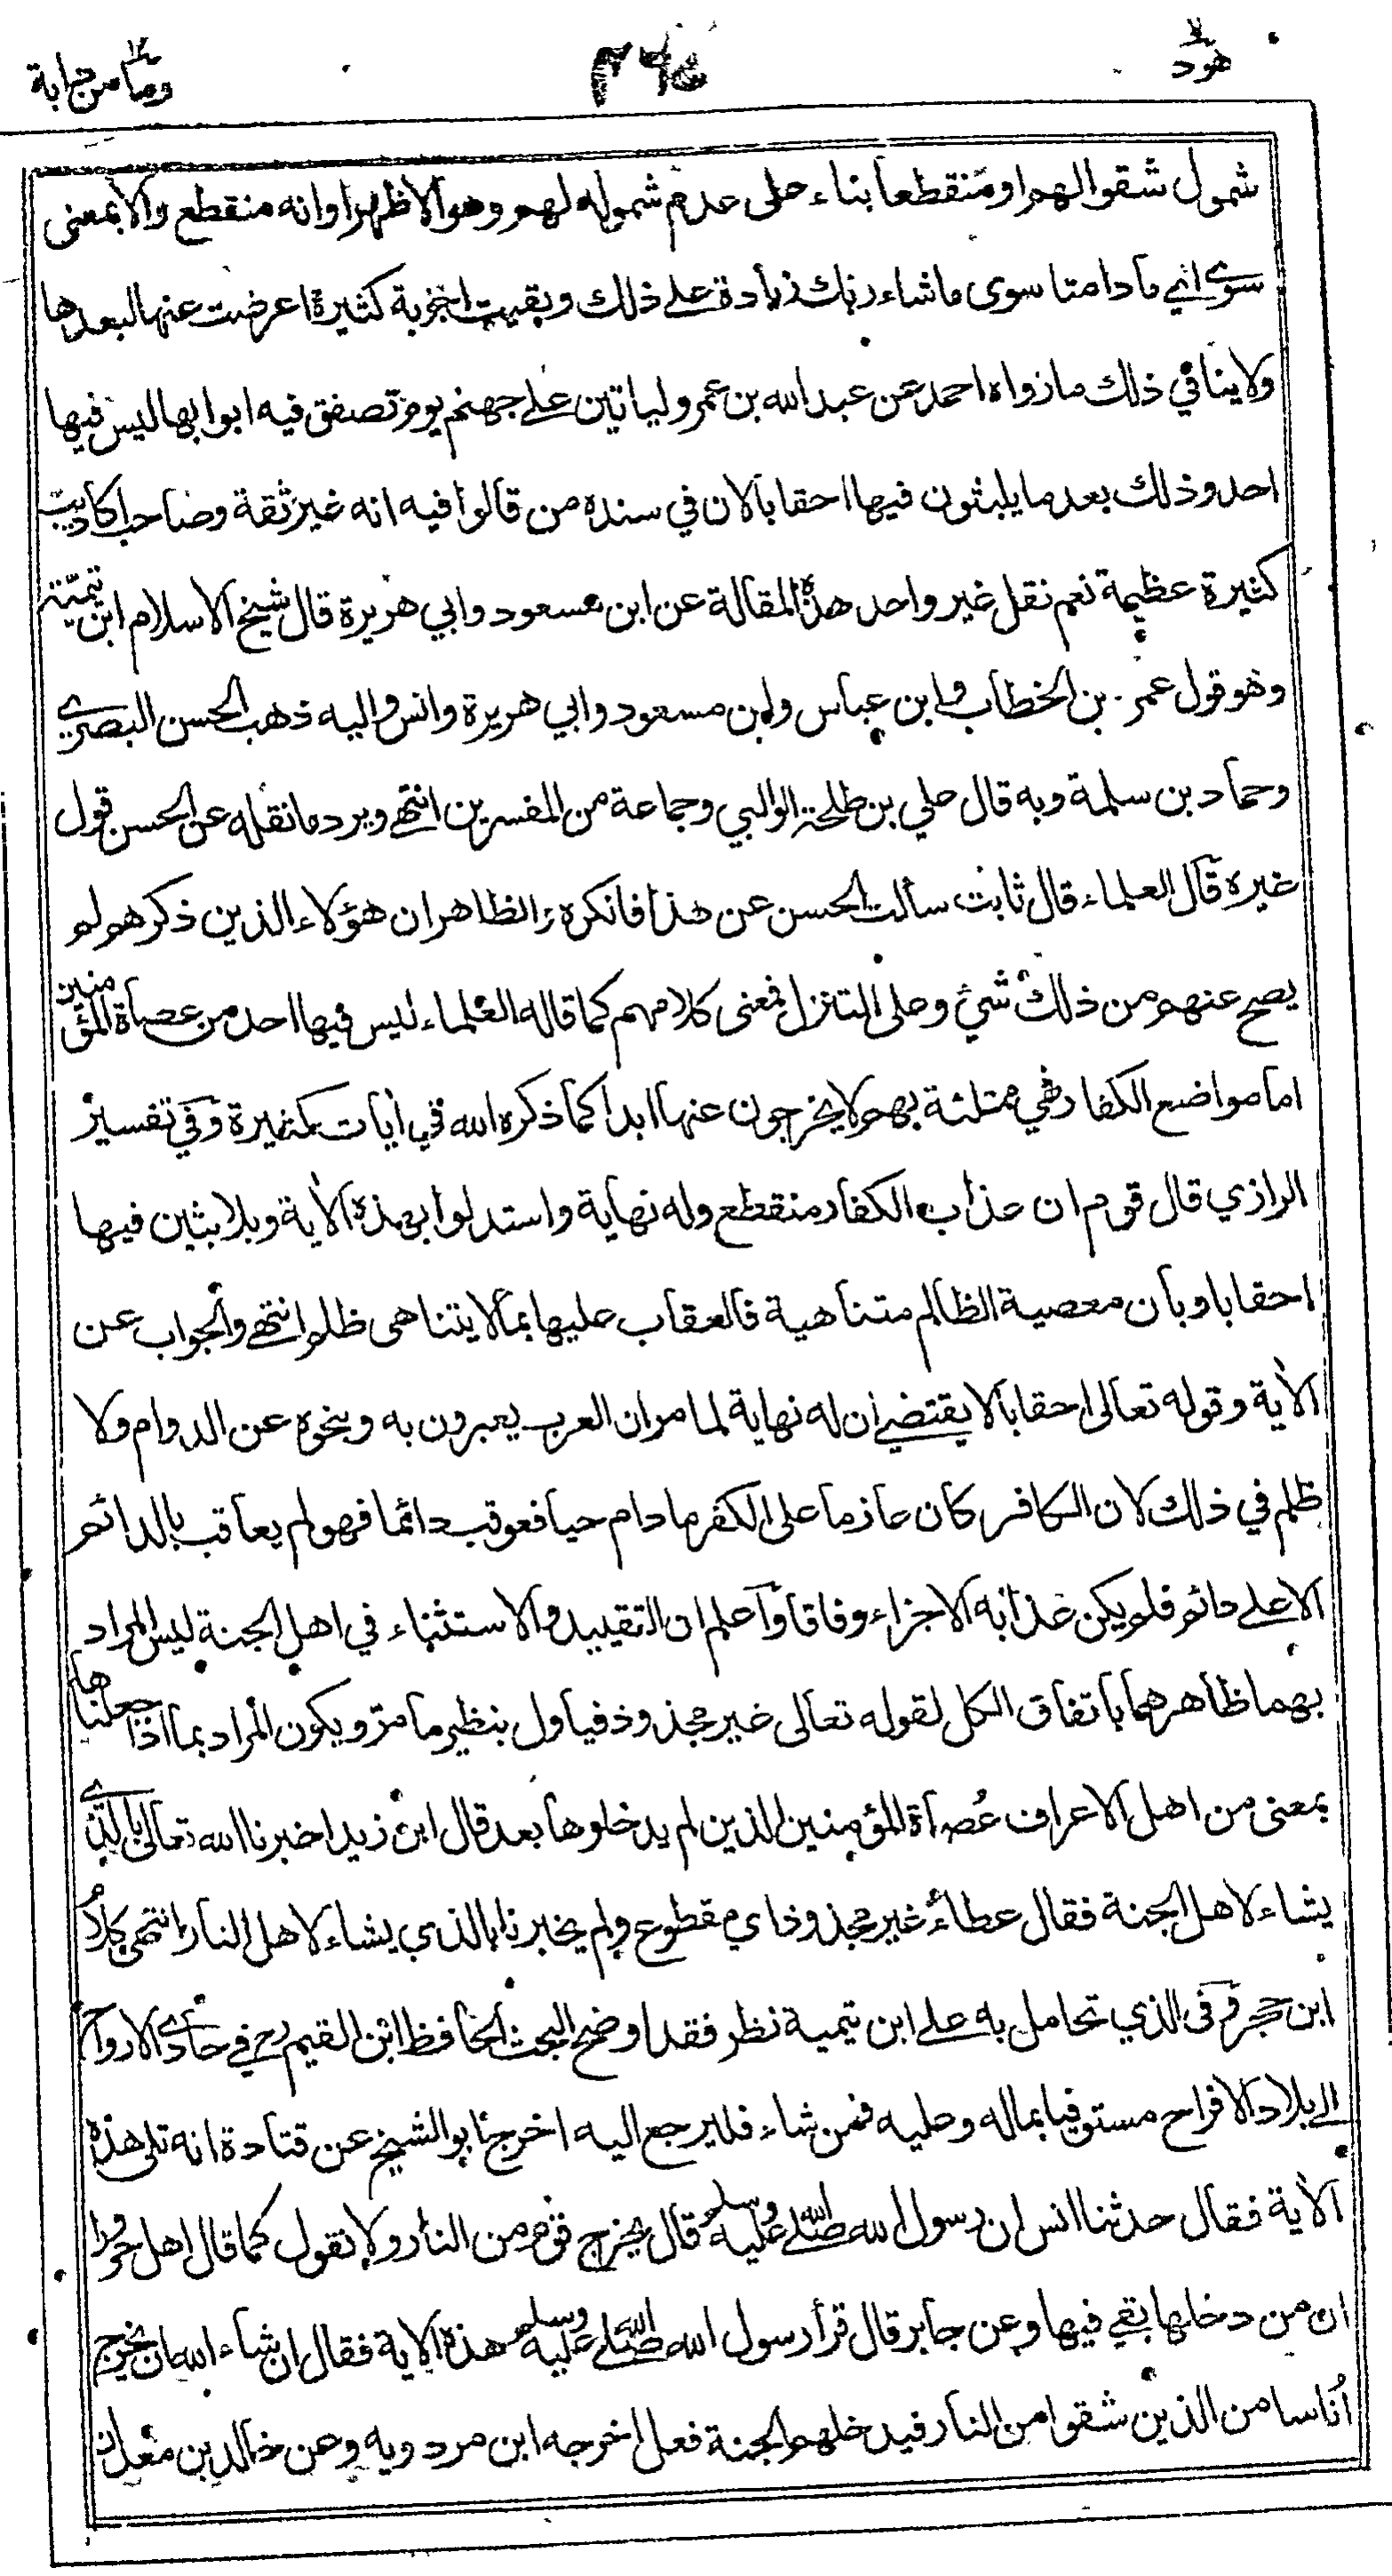 هود
٣٦٥
وما من دابة
شمول شقوا لهم او منقطعا بناء على عدم شموله لهم وهو الاظهر او انه منقطع والا بمعنى
سوى اي ما دامتا سوى ما شاء ربك زيادة على ذلك وبقيت اجوبة كثيرة اعرضت عنها لبعدها
ولا ينافي ذلك ما رواه احمد عن عبد الله بن عمر وليأتين على جهنم يوم تصفق فيه ابوابها ليس فيها
احد وذلك بعد ما يلبثون فيها احقابا لان في سنده من قالوا فيه انه غير ثقة وصاحب اكاذيب
كثيرة عظيمة نعم نقل غير واحد هذه المقالة عن ابن مسعود وابي هريرة قال شيخ الاسلام ابن تيمية
وهو قول عمر بن الخطاب وابن عباس وابن مسعود وابي هريرة وانس واليه ذهب الحسن البصري
وحماد بن سلمة وبه قال علي بن طلحة الوالبي وجماعة من المفسرين انتهى ويرد ما نقله عن الحسن قول
غيره قال العلماء قال ثابت سألت الحسن عن هذا فانكره والظاهر ان هؤلاء الذين ذكرهم لم
يصح عنهم من ذلك شيء وعلى التنزل فمعنى كلامهم كما قاله العلماء ليس فيها احد من عصاة المؤمنين
اما مواضع الكفار فهي ممتلئة بهم لا يخرجون عنها ابدا كما ذكره الله في ايات كثيرة وفي تفسير
الرازي قال قوم ان عذاب الكفار منقطع وله نهاية واستدلوا بهذه الاية وبلابثين فيها
احقابا وبان معصية الظالم متناهية فالعقاب عليها بما لا يتناهى ظلم انتهى والجواب عن
الاية وقوله تعالى احقابا لا يقتضي ان له نهاية لما مر ان العرب يعبرون به وبنحوه عن الدوام ولا
ظلم في ذلك لان الكافر كان عازما على الكفر ما دام حيا فعوقب دائما فهو لم يعاقب بالدائم
الا على دائم فلم يكن عذابه الا جزاء وفاقا واعلم ان التقييد والاستثناء في اهل الجنة ليس المراد
بهما ظاهرهما باتفاق الكل لقوله تعالى غير مجذوذ فيأول بنظير ما مر ويكون المراد بما اذا جعلناها
بمعنى من اهل الاعراف عصاة المؤمنين الذين لم يدخلوها بعد قال ابن زيد اخبرنا الله تعالى بالذي
يشاء لاهل الجنة فقال عطاء غير مجذوذ اي مقطوع ولم يخبرنا بالذي يشاء لاهل النار انتهى كلام
ابن حجر وفي الذي تحامل به على ابن تيمية نظر فقد اوضح البحث الحافظ ابن القيم رح في حادي الارواح
الى بلاد الافراح مستوفيا بماله وعليه فمن شاء فليرجع اليه اخرج ابو الشيخ عن قتادة انه تلى هذه
الاية فقال حدثنا انس ان رسول الله صلى الله عليه وسلم قال يخرج قوم من النار ولا نقول كما قال اهل حرورا
ان من دخلها بقي فيها وعن جابر قال قرأ رسول الله صلى الله عليه وسلم هذه الاية فقال ان شاء الله ان يخرج
أناسا من الذين شقوا من النار فيدخلهم الجنة فعل اخرجه ابن مردويه وعن خالد بن معدان